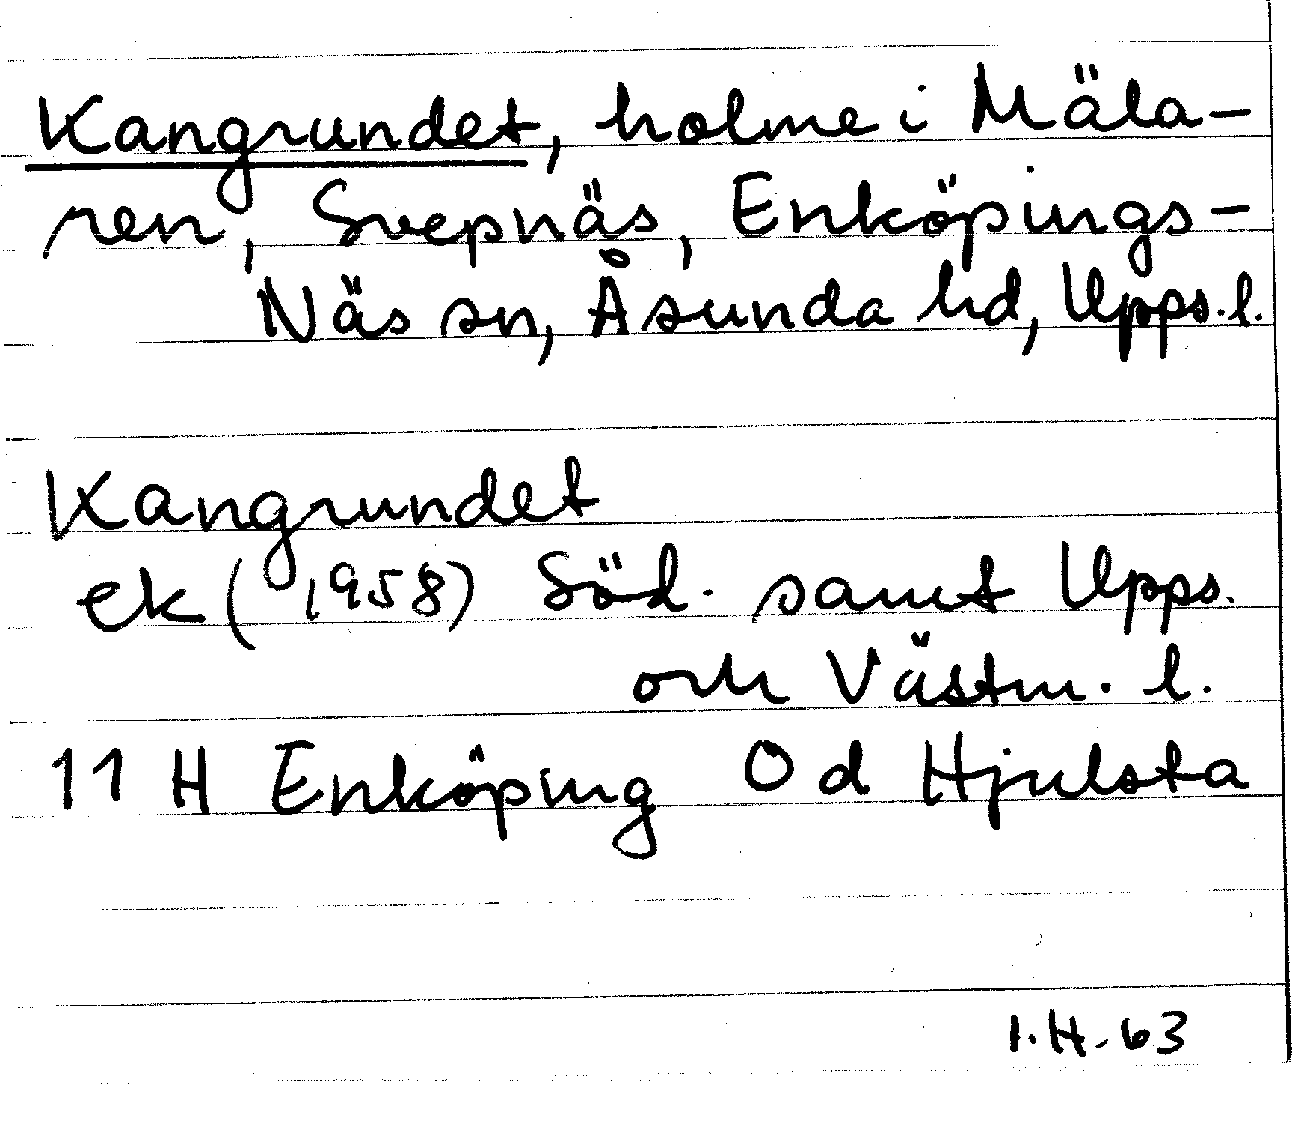 Kangrundet, holme i Mäla-
ren, Svepnäs, Enköpings-
Näs sn, Åsunda hd, Upps. l.
Kangrundet
ek (1958) Söd. samt Upps.
och Västm. l.
11 H Enköping 0 d Hjulsta
I.H. 63